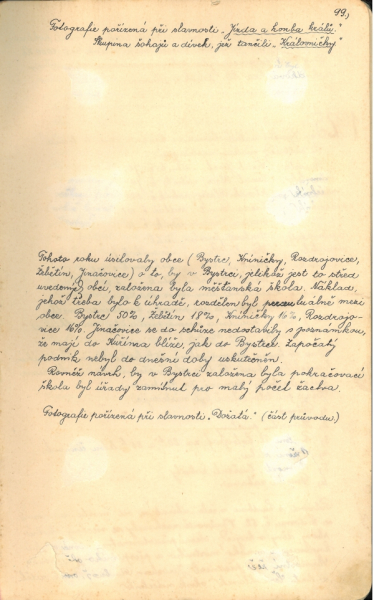 99,
Fotografie pořízená při slavnosti „Jízda a honba králů."
Skupina šohajů a dívek, jež tančili „Královničky"
Tohoto roku usilovaly obce (Bystrc, Kníničky, Rozdrojovice,
Žebětín, Jinačovice) o to, by v Bystrci, jelikož jest to střed
uvedených obcí, založena byla měšťanská škola. Náklad,
jehož třeba bylo k úhradě, rozdělen byl percentuálně mezi
obce. Bystrc 50%, Žebětín 18%, Kníničky 16%, Rozdrojo-
vice 16%. Jinačovice se do schůze nedostavily s poznámkou,
že mají do Kuřima blíže, jak do Bystrce. Započatý
podnik nebyl do dnešní doby uskutečněn.
Rovněž návrh, by v Bystrci založena byla pokračovací
škola byl úřady zamítnut pro malý počet žactva.
Fotografie pořízená při slavnosti „Dožatá." (část průvodu.)